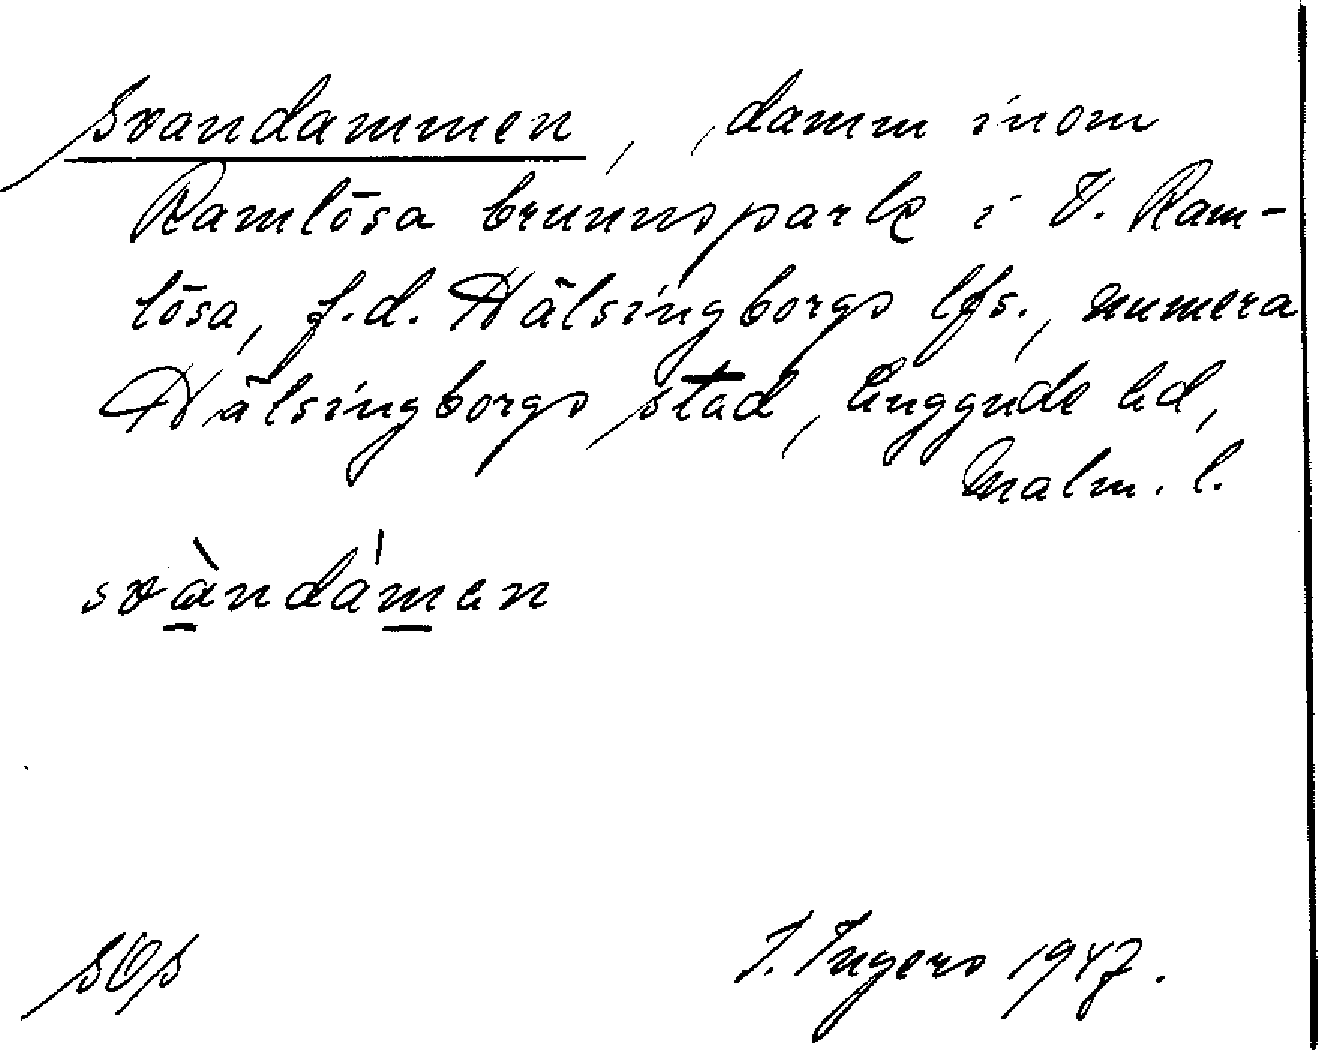 Svandammen, damm inom
Ramlösa brunnspark i V. Ram-
lösa, f.d. Hälsingborgs lfs., numera
Hälsingborgs stad, Luggude hd,
Malm. l.
svàndámen
I. Ingers 1947.